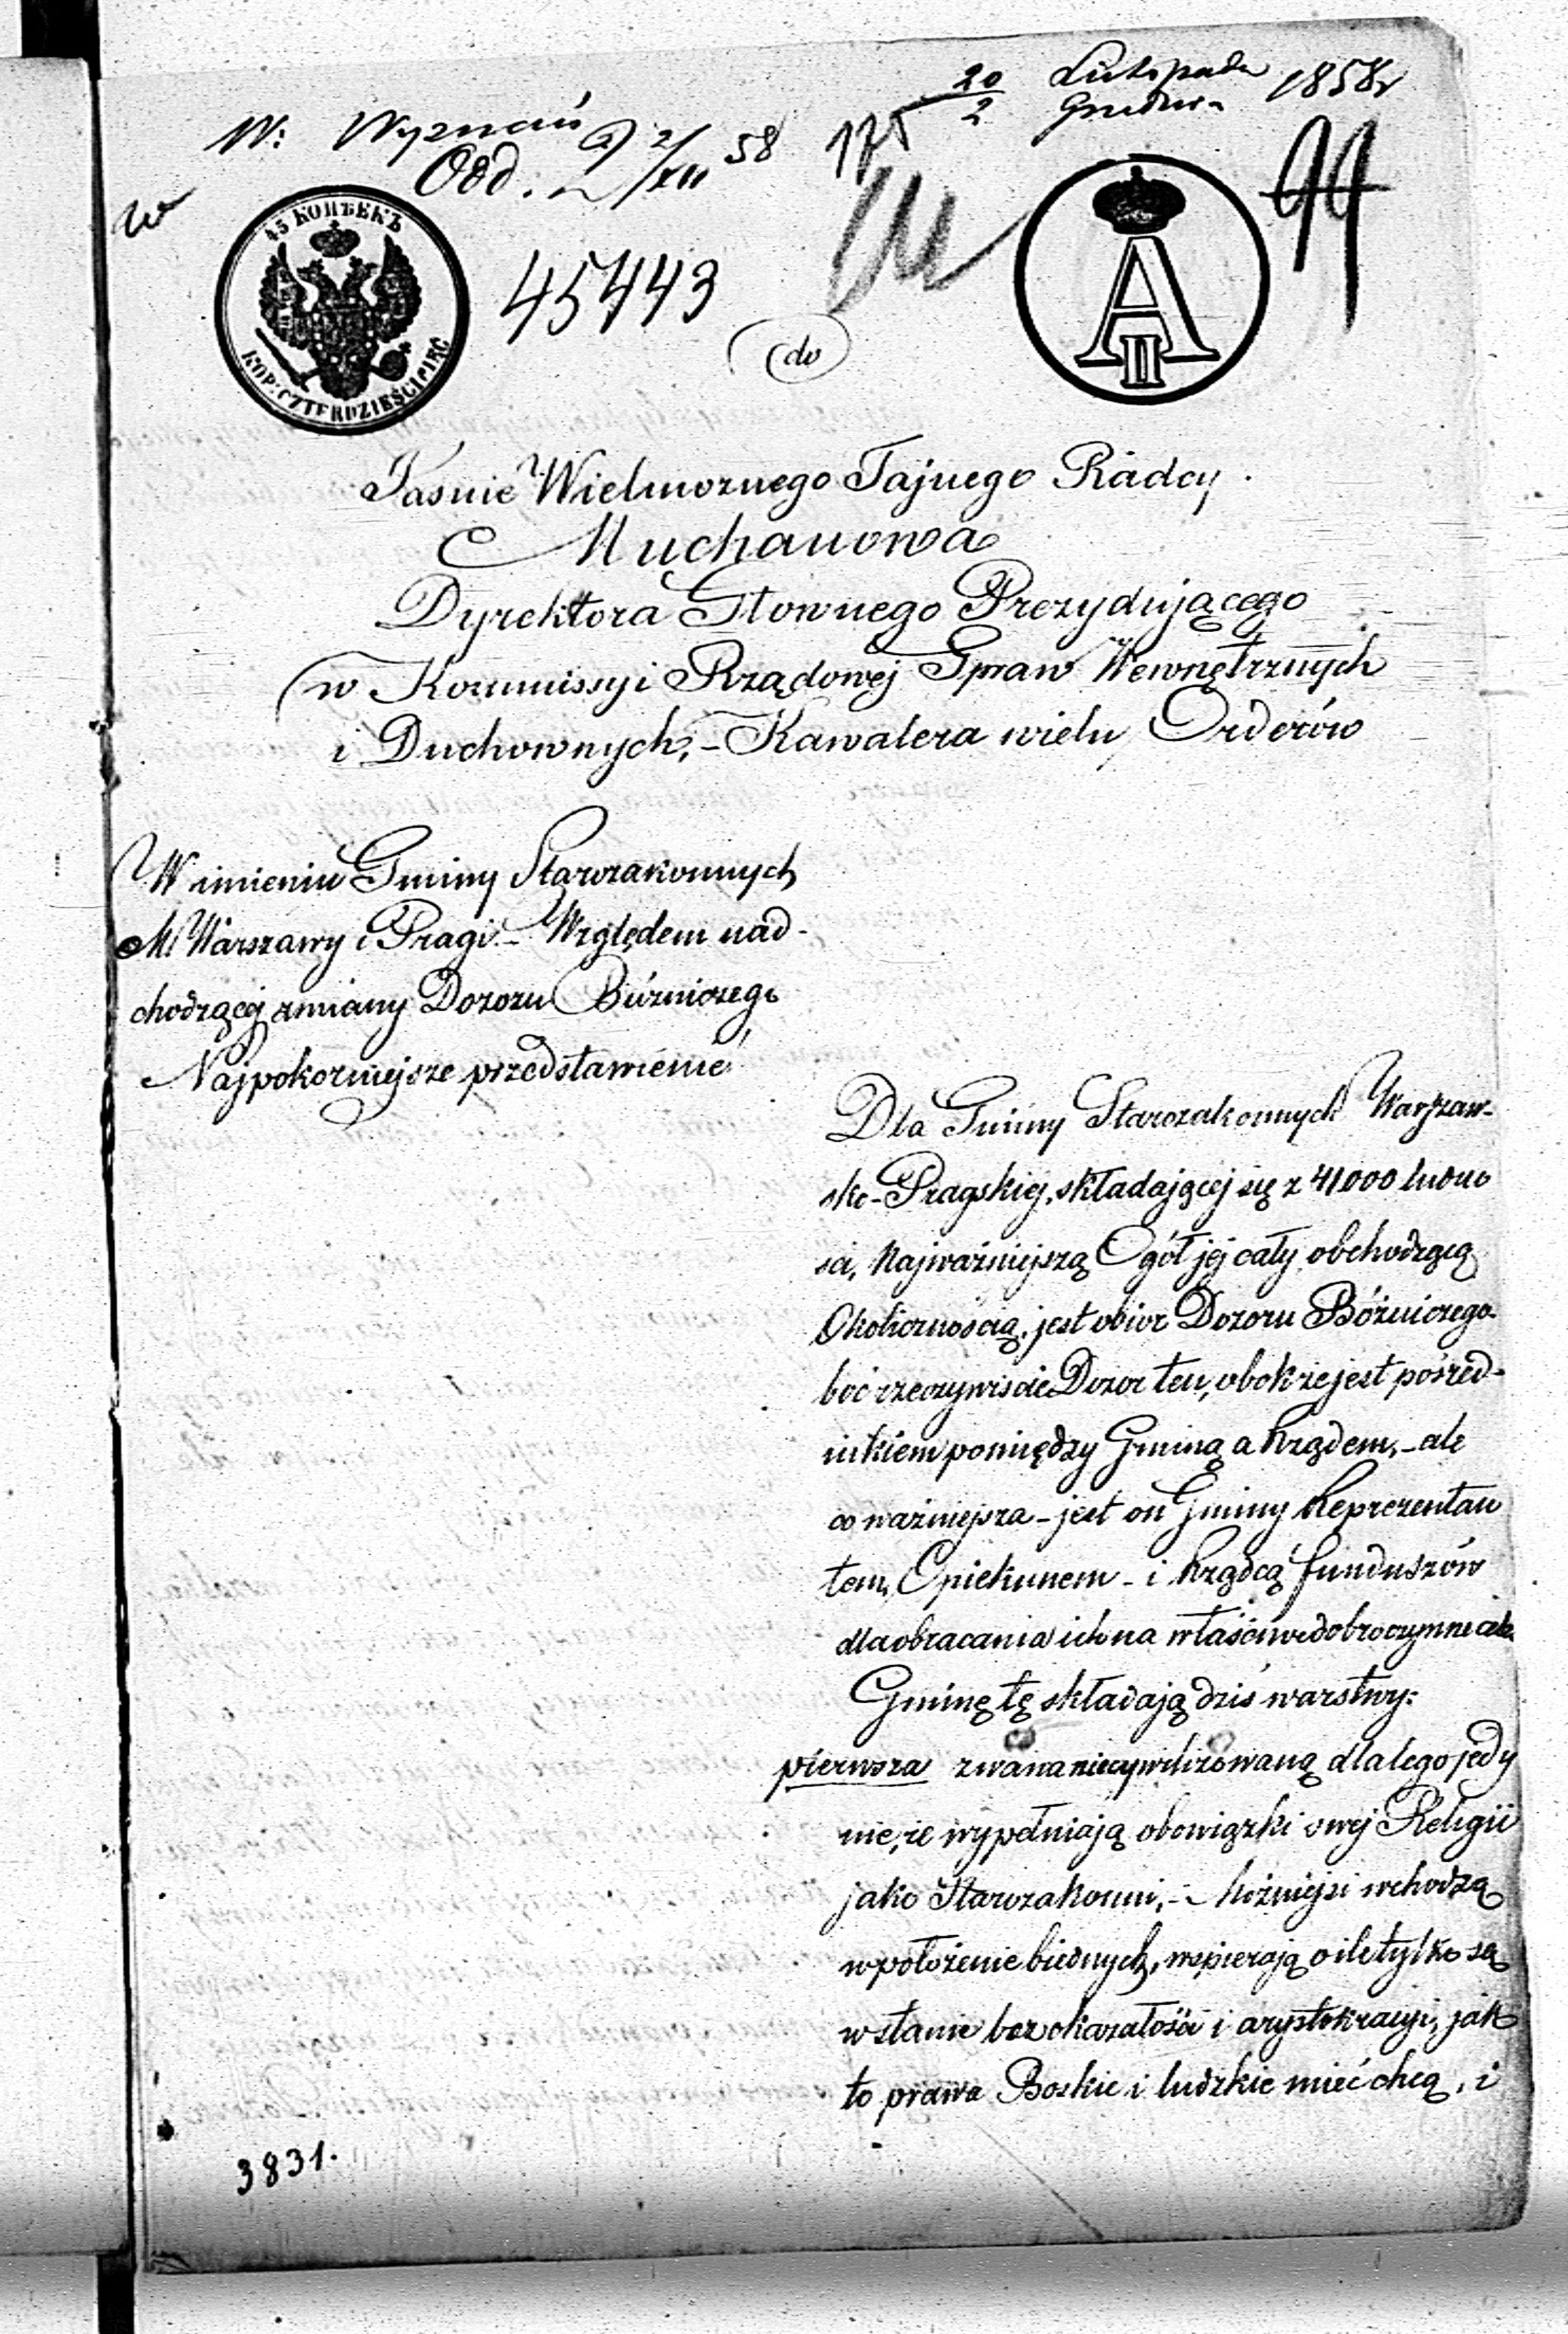 20/2 Listopada Grudnia 1858r
W: Wyznań
Odd. 2/XII 58
175
99
w
45 КОПѢЕКЪ
KOP: CZTERDZIEŚCI PIĘĆ
45443
A II
do
Jasnie Wielmoznego Tajnego Radcy.
Muchanowa
Dyrektora Głownego Prezydującego
w Kommissyi Rządowej Spraw Wewnętrznych
i Duchownych, – Kawalera wielu Orderów
W imieniu Gminy Starozakonnych
M. Warszawy i Pragi. – Względem nad-
chodzącej zmiany Dozoru Bóżniczego
Najpokorniejsze przedstawienie
Dla Gminy Starozakonnych Warszaw-
sko-Pragskiej, składającej się z 41000 ludno
sci, Najważniejszą Ogół jej cały obchodzącą
Okolicznością, jest obior Dozoru Bóżniczego.
boć rzeczywiscie Dozor ten, obok że jest pośred-
nikiem pomiędzy Gminą a Rządem, – ale
co ważniejsza – jest on Gminy Reprezentan
tem, Opiekunem – i Rządcą funduszów
dla obracania ich na właściwe dobroczynne cele.
Gminę tę składają dziś warstwy:
pierwsza zwana niecywilizowaną dla tego jedy
nie, że wypełniają obowiązki swej Religii
jako Starozakonni, – Możniejsi wchodzą
w położenie biednych, wspierają o ile tylko są
w stanie bez okazałości i arystokracyi, jak
to prawa Boskie i ludzkie mieć chcą, i
3831.